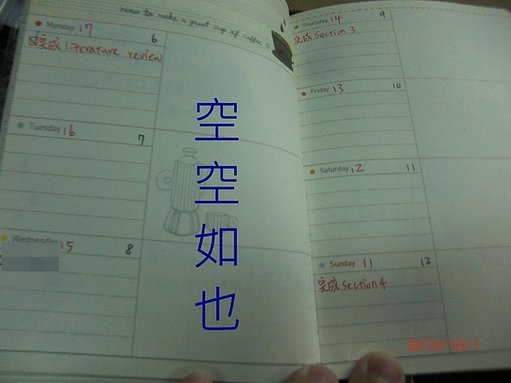 now to make a great cup of coffee ?
Monday 17
6
完成 literature review
Tuesday 16
7
Wednesday 15
8
空
空
如
也
Thursday 14
9
完成 Section 3
Friday 13
10
Saturday 12
11
Sunday 11
12
完成 Section 4